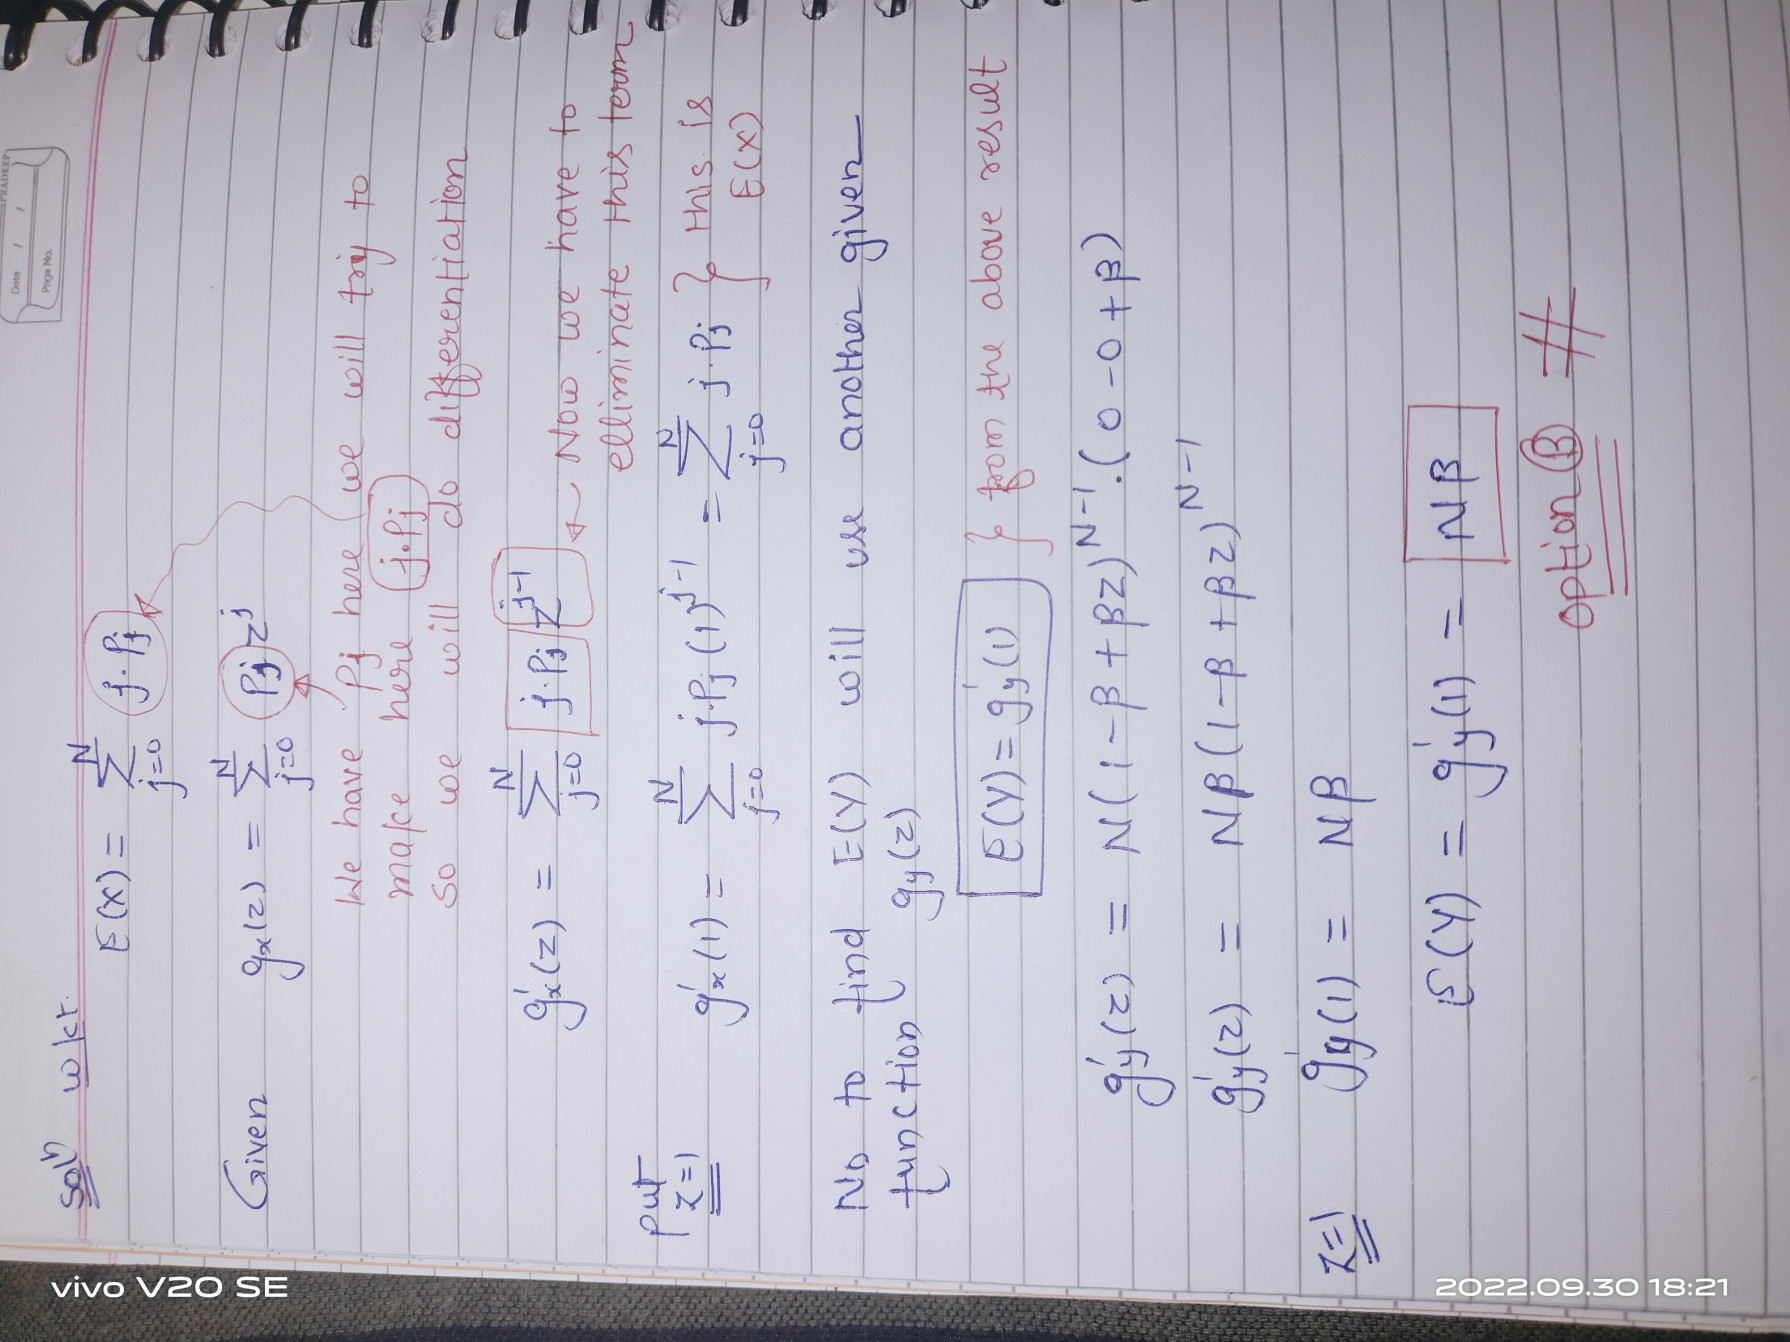 PRADEEP
Date / /
Page No.
Solⁿ wkt.
E(x) = \sum_{j=0}^{N} j.Pj
Given gx(z) = \sum_{j=0}^{N} Pj z^j
We have Pj here we will try to
make here j.Pj
so we will do differentiation
g'x(z) = \sum_{j=0}^{N} j.Pj z^{j-1} ← Now we have to
elliminate this term
put z=1 g'x(1) = \sum_{j=0}^{N} j.Pj (1)^{j-1} = \sum_{j=0}^{N} j.Pj } this is
E(x)
No to find E(Y) will use another given
function gy(z)
E(Y) = g'y(1) } from the above result
g'y(z) = N(1-β+βz)^{N-1}.(0-0+β)
g'y(z) = Nβ(1-β+βz)^{N-1}
z=1 g'y(1) = Nβ
E(Y) = g'y(1) = Nβ
option B #
vivo V20 SE
2022.09.30 18:21